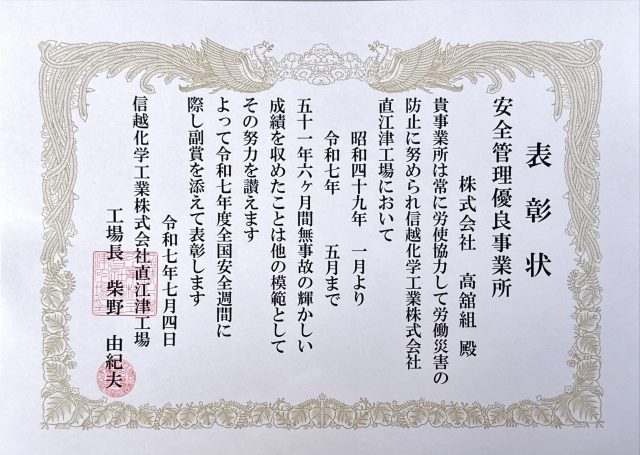 表彰状
安全管理優良事業所
株式会社 高舘組 殿
貴事業所は常に労使協力して労働災害の
防止に努められ信越化学工業株式会社
直江津工場において
昭和四十九年 一月より
令和七年 五月まで
五十一年六ヶ月間無事故の輝かしい
成績を収めたことは他の模範として
その努力を讃えます
よって令和七年度全国安全週間に
際し副賞を添えて表彰します
令和七年七月四日
信越化学工業株式会社直江津工場
工場長 柴野 由紀夫